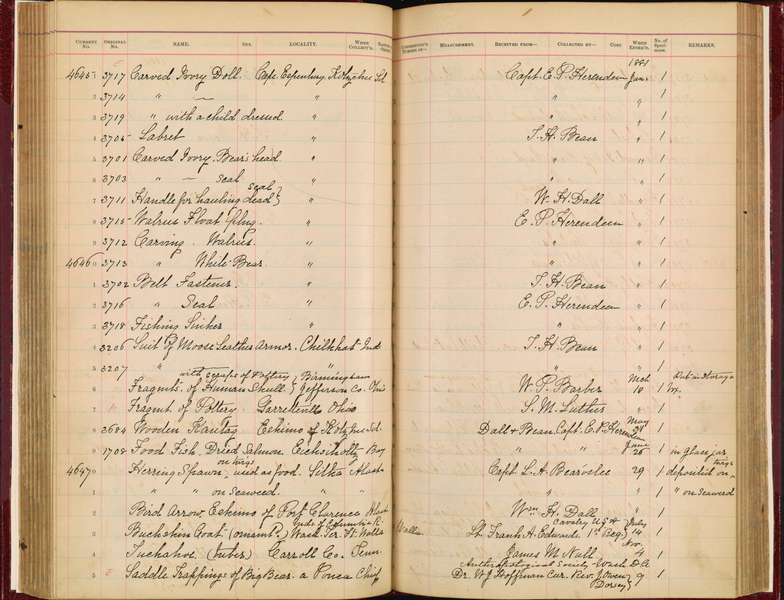 CURRENT No. ORIGINAL No. NAME. SEX. LOCALITY. WHEN COLLECT'D. NATURE OF
CORRESPOND'G NUMBER OF— MEASUREMENT. RECEIVED FROM— COLLECTED BY— COST. WHEN ENTER'D. No. of Specimens. REMARKS.
1881
46465 3717 Carved Ivory Doll. Cape Espenburg, Kotzebue Sd Capt. E. P. Herendeen Jan. 1
2 3714 " — " " " 1
3 3719 " with a child dressed. " " " 1
4 3705 Labret " T. H. Bean " 1
5 3701 Carved Ivory Bear's head. " " " 1
6 3703 " — Seal " " " 1
7 3711 Handle for hauling dead seal } " W. H. Dall " 1
8 3715 Walrus Float Plug. " E. P. Herendeen " 1
9 3712 Carving. Walrus. " " " 1
46460 3713 " White Bear " " " 1
1 3702 Belt Fastener. " T. H. Bean " 1
2 3716 " Seal " E. P. Herendeen " 1
3 3718 Fishing Sinker " " " 1
4 3206 Suit of Moose Leather Armor. Chilkhat Ind. T. H. Bean " 1
5 3207 " " " " 1
with scraps of Pottery } Birmingham
6 Fragmt. of Human Skull. } Jefferson Co. Ohio W. P. Barber Mch 10 1
7 Fragmt of Pottery. Ohio S. M. Luther " 1
8 3684 Wooden Kantag Eskimo of Kotzbue Sd. Dall & Bean. Capt. E. P. Herendeen May 28 1
9 1708 Food Fish. Dried Salmon. Eschscholtz Bay " " June 25 1 in glass jar
on twigs
46470 Herring Spawn, used as food. Sitka Alaska Capt. L. A. Beardslee 29 1 deposited on twigs
1 " " on seaweed. " " " " 1 " on seaweed
2 Bird Arrow, Eskimo of Port Clarence Alaska Wm H. Dall " 1
Inds. of Columbia R. Cavalry U.S.A July
3 Buckskin Coat (ornamt'd.) Wash. Ter. Ft. Walla Walla Lt. Frank A. Edwards 1st Reg.} 14 1
4 Tuckahoe (Tuber) Carroll Co. Tenn. James M. Null. Nov. 4 1
Anthropological Society Wash. D.C.
5 Saddle Trappings of Big Bear. a Ponca Chief Dr. W. J. Hoffman Cur. Rev. J. Owen Dorsey } 9 1